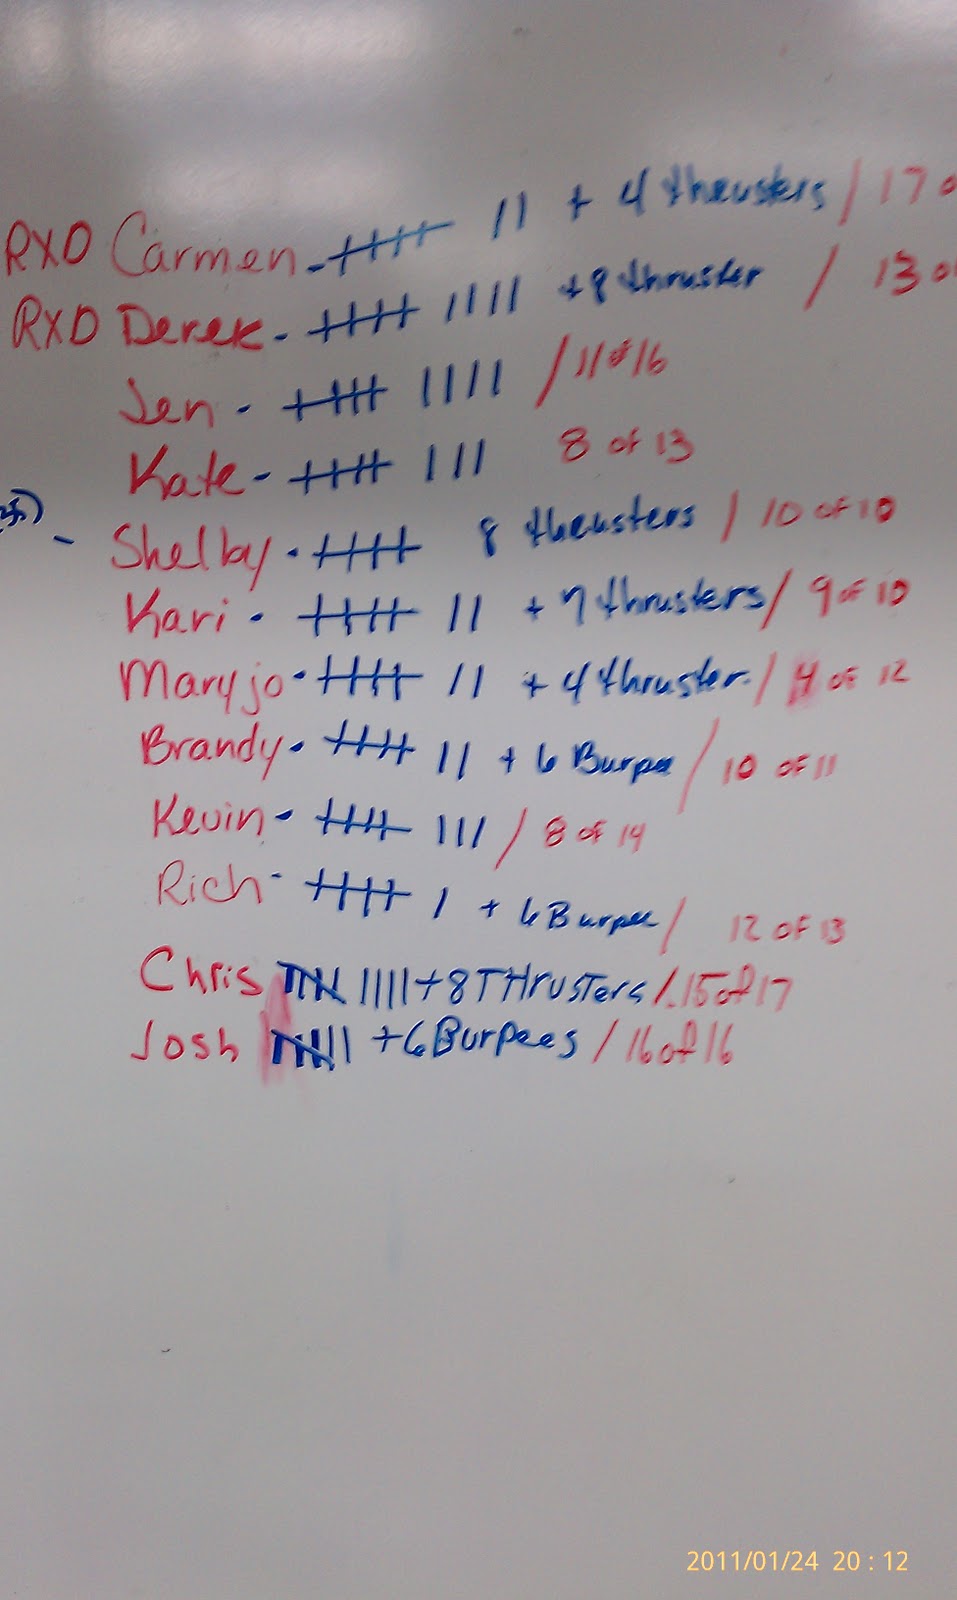 RXD Carmen - 卌 II + 4 thrusters / 17 o
RXD Derek - 卌 IIII + 8 thruster / 13 o
Jen - 卌 IIII / 11 of 16
Kate - 卌 III 8 of 13
- Shelby - 卌 8 thrusters / 10 of 10
Kari - 卌 II + 7 thrusters / 9 of 10
Maryjo - 卌 II + 4 thruster / 4 of 12
Brandy - 卌 II + 6 Burpee / 10 of 11
Kevin - 卌 III / 8 of 14
Rich - 卌 I + 6 Burpee / 12 of 13
Chris 卌 IIII + 8 THrusTers / 15 of 17
Josh 卌 II + 6 Burpees / 16 of 16
2011/01/24 20:12